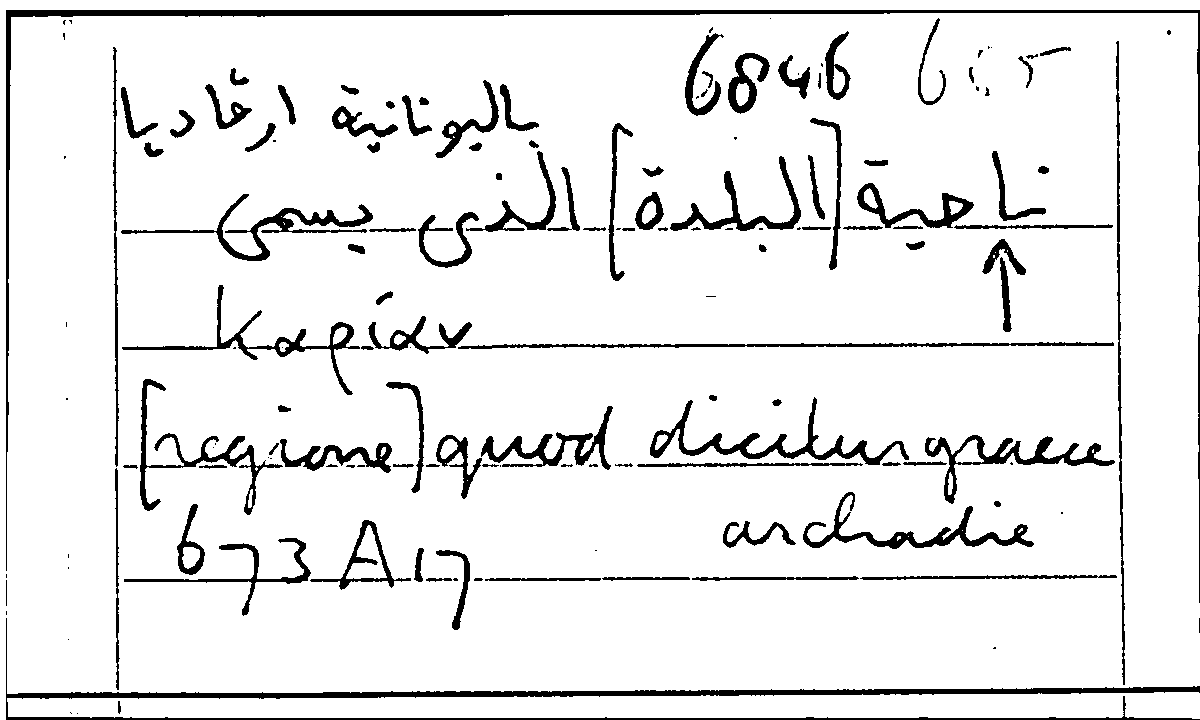 6846 6
بالیونانیة ارقادیا
ناحیة [البلدة] الذی یسمی
Καρίαν
[regione] quod dicitur graece
archadie
673 A 17